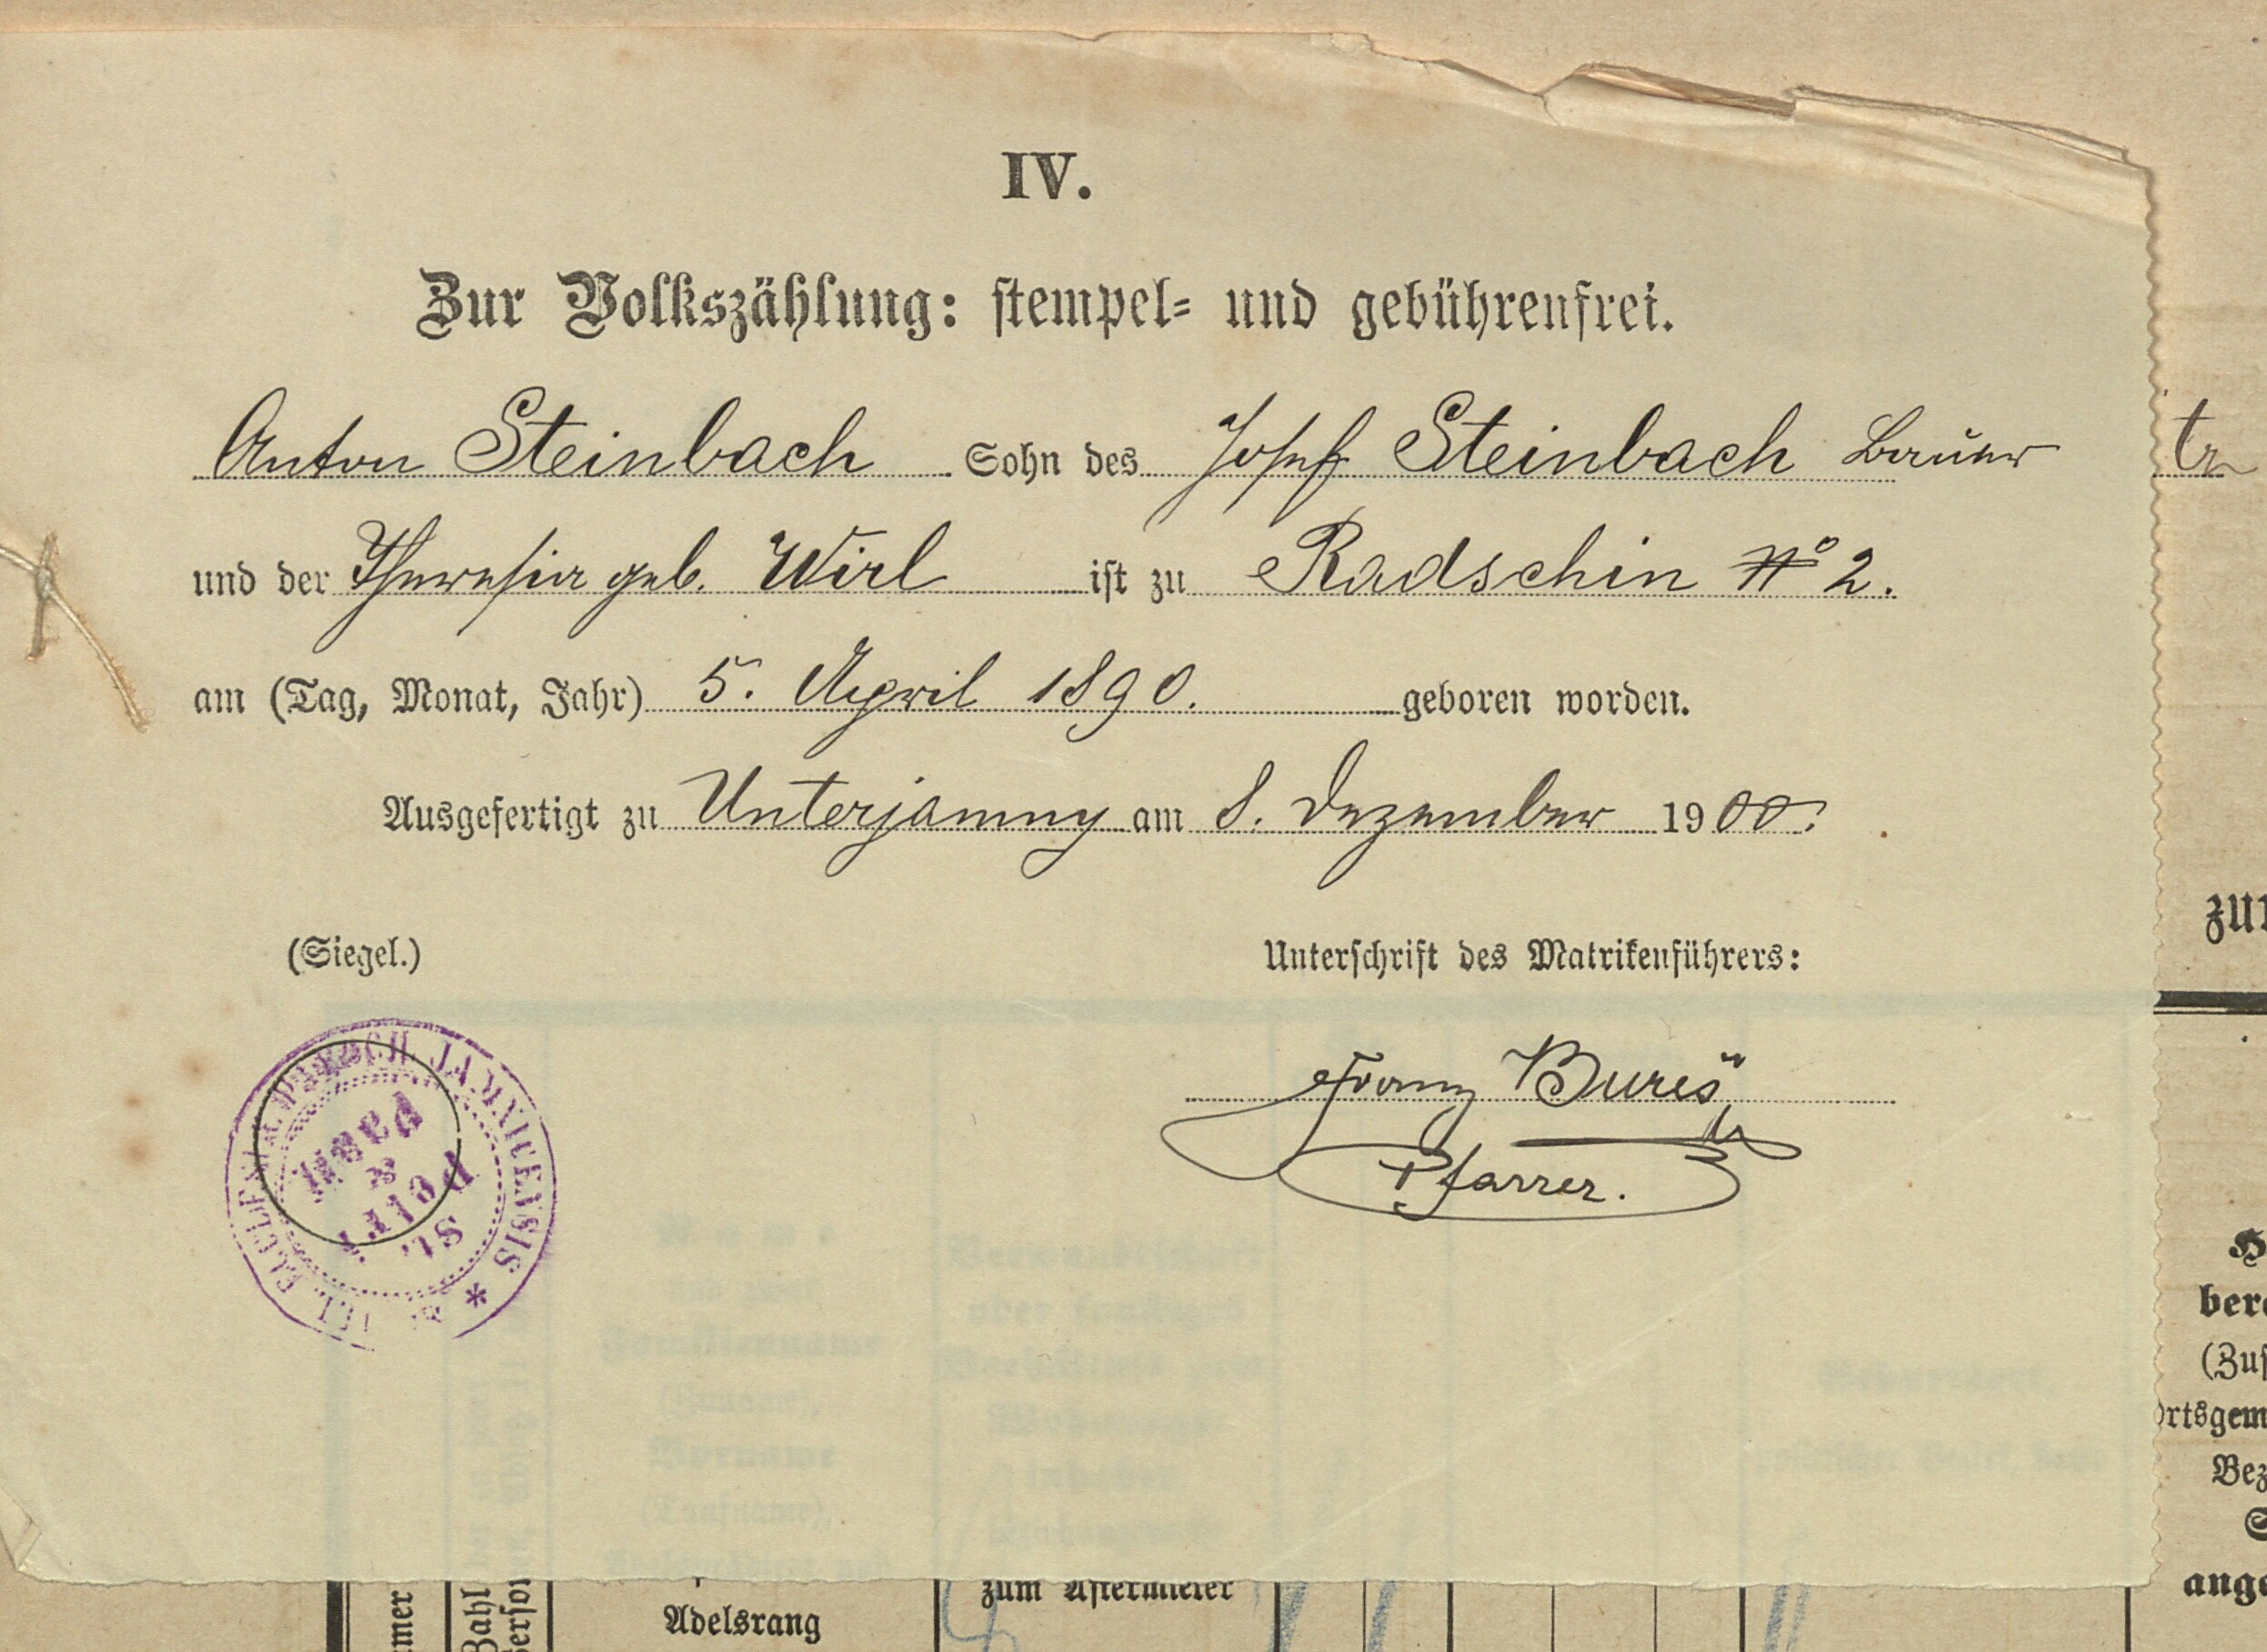 IV.
Zur Volkszählung: stempel= und gebührenfrei.
Anton Steinbach Sohn des Josef Steinbach Bauer
und der Theresia geb. Wirl ist zu Radschin No 2.
am (Tag, Monat, Jahr) 5. April 1890. geboren worden.
Ausgefertigt zu Unterjamny am 8. Dezember 1900.
(Siegel.)
Unterschrift des Matrikenführers:
Franz Bureš
Pfarrer.
JAMNICENSIS *
St. Petri & Pauli
zum Aftermieter
Adelsrang
Zahl